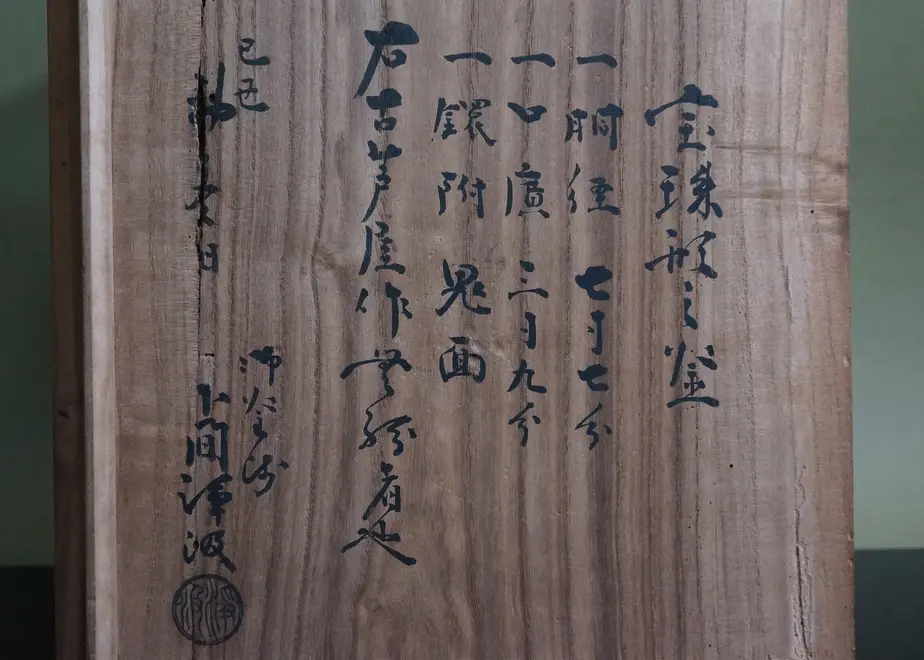 宝珠形之釜
一胴径 七寸七分
一口廣 三寸九分
一鐶附 鬼面
右古芦屋作無紛者也
己丑
冬日
御釜師
下間浄汲